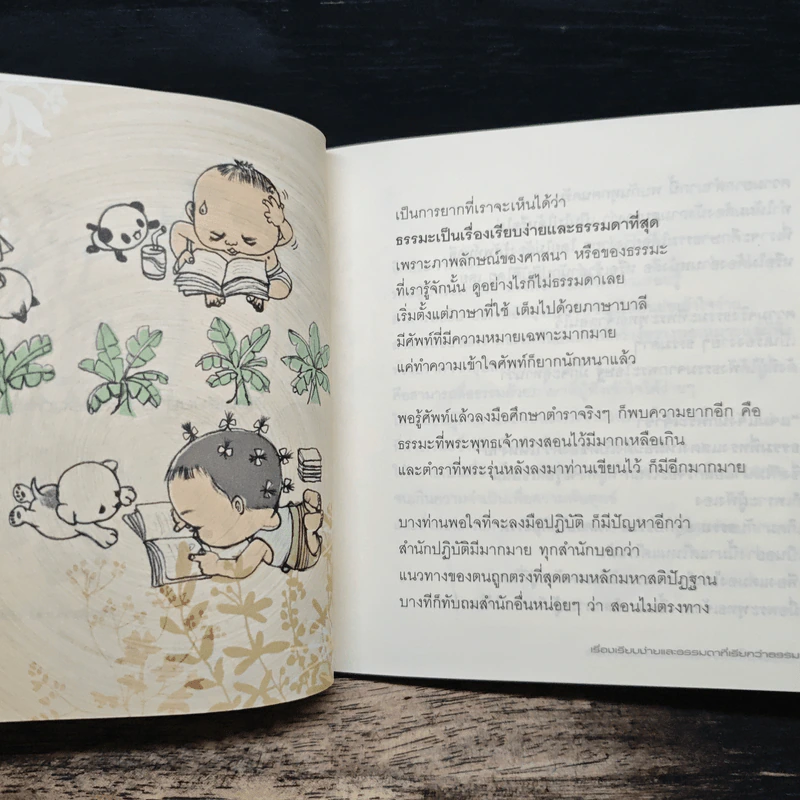 เป็นการยากที่เราจะเห็นได้ว่า
ธรรมะเป็นเรื่องเรียบง่ายและธรรมดาที่สุด
เพราะภาพลักษณ์ของศาสนา หรือของธรรมะ
ที่เรารู้จักนั้น ดูอย่างไรก็ไม่ธรรมดาเลย
เริ่มตั้งแต่ภาษาที่ใช้ เต็มไปด้วยภาษาบาลี
มีศัพท์ที่มีความหมายเฉพาะมากมาย
แค่ทำความเข้าใจศัพท์ก็ยากนักหนาแล้ว
พอรู้ศัพท์แล้วลงมือศึกษาตำราจริงๆ ก็พบความยากอีก คือ
ธรรมะที่พระพุทธเจ้าทรงสอนไว้มีมากเหลือเกิน
และตำราที่พระรุ่นหลังลงมาท่านเขียนไว้ ก็มีอีกมากมาย
บางท่านพอใจที่จะลงมือปฏิบัติ ก็มีปัญหาอีกว่า
สำนักปฏิบัติมีมากมาย ทุกสำนักบอกว่า
แนวทางของตนถูกตรงที่สุดตามหลักมหาสติปัฏฐาน
บางทีก็ทับถมสำนักอื่นหน่อยๆ ว่า สอนไม่ตรงทาง
เรื่องเรียบง่ายและธรรมดาที่เรียกว่าธรรม